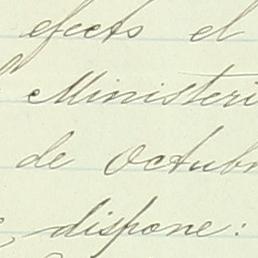 efects el
Ministeri
de Octubr
dispone: